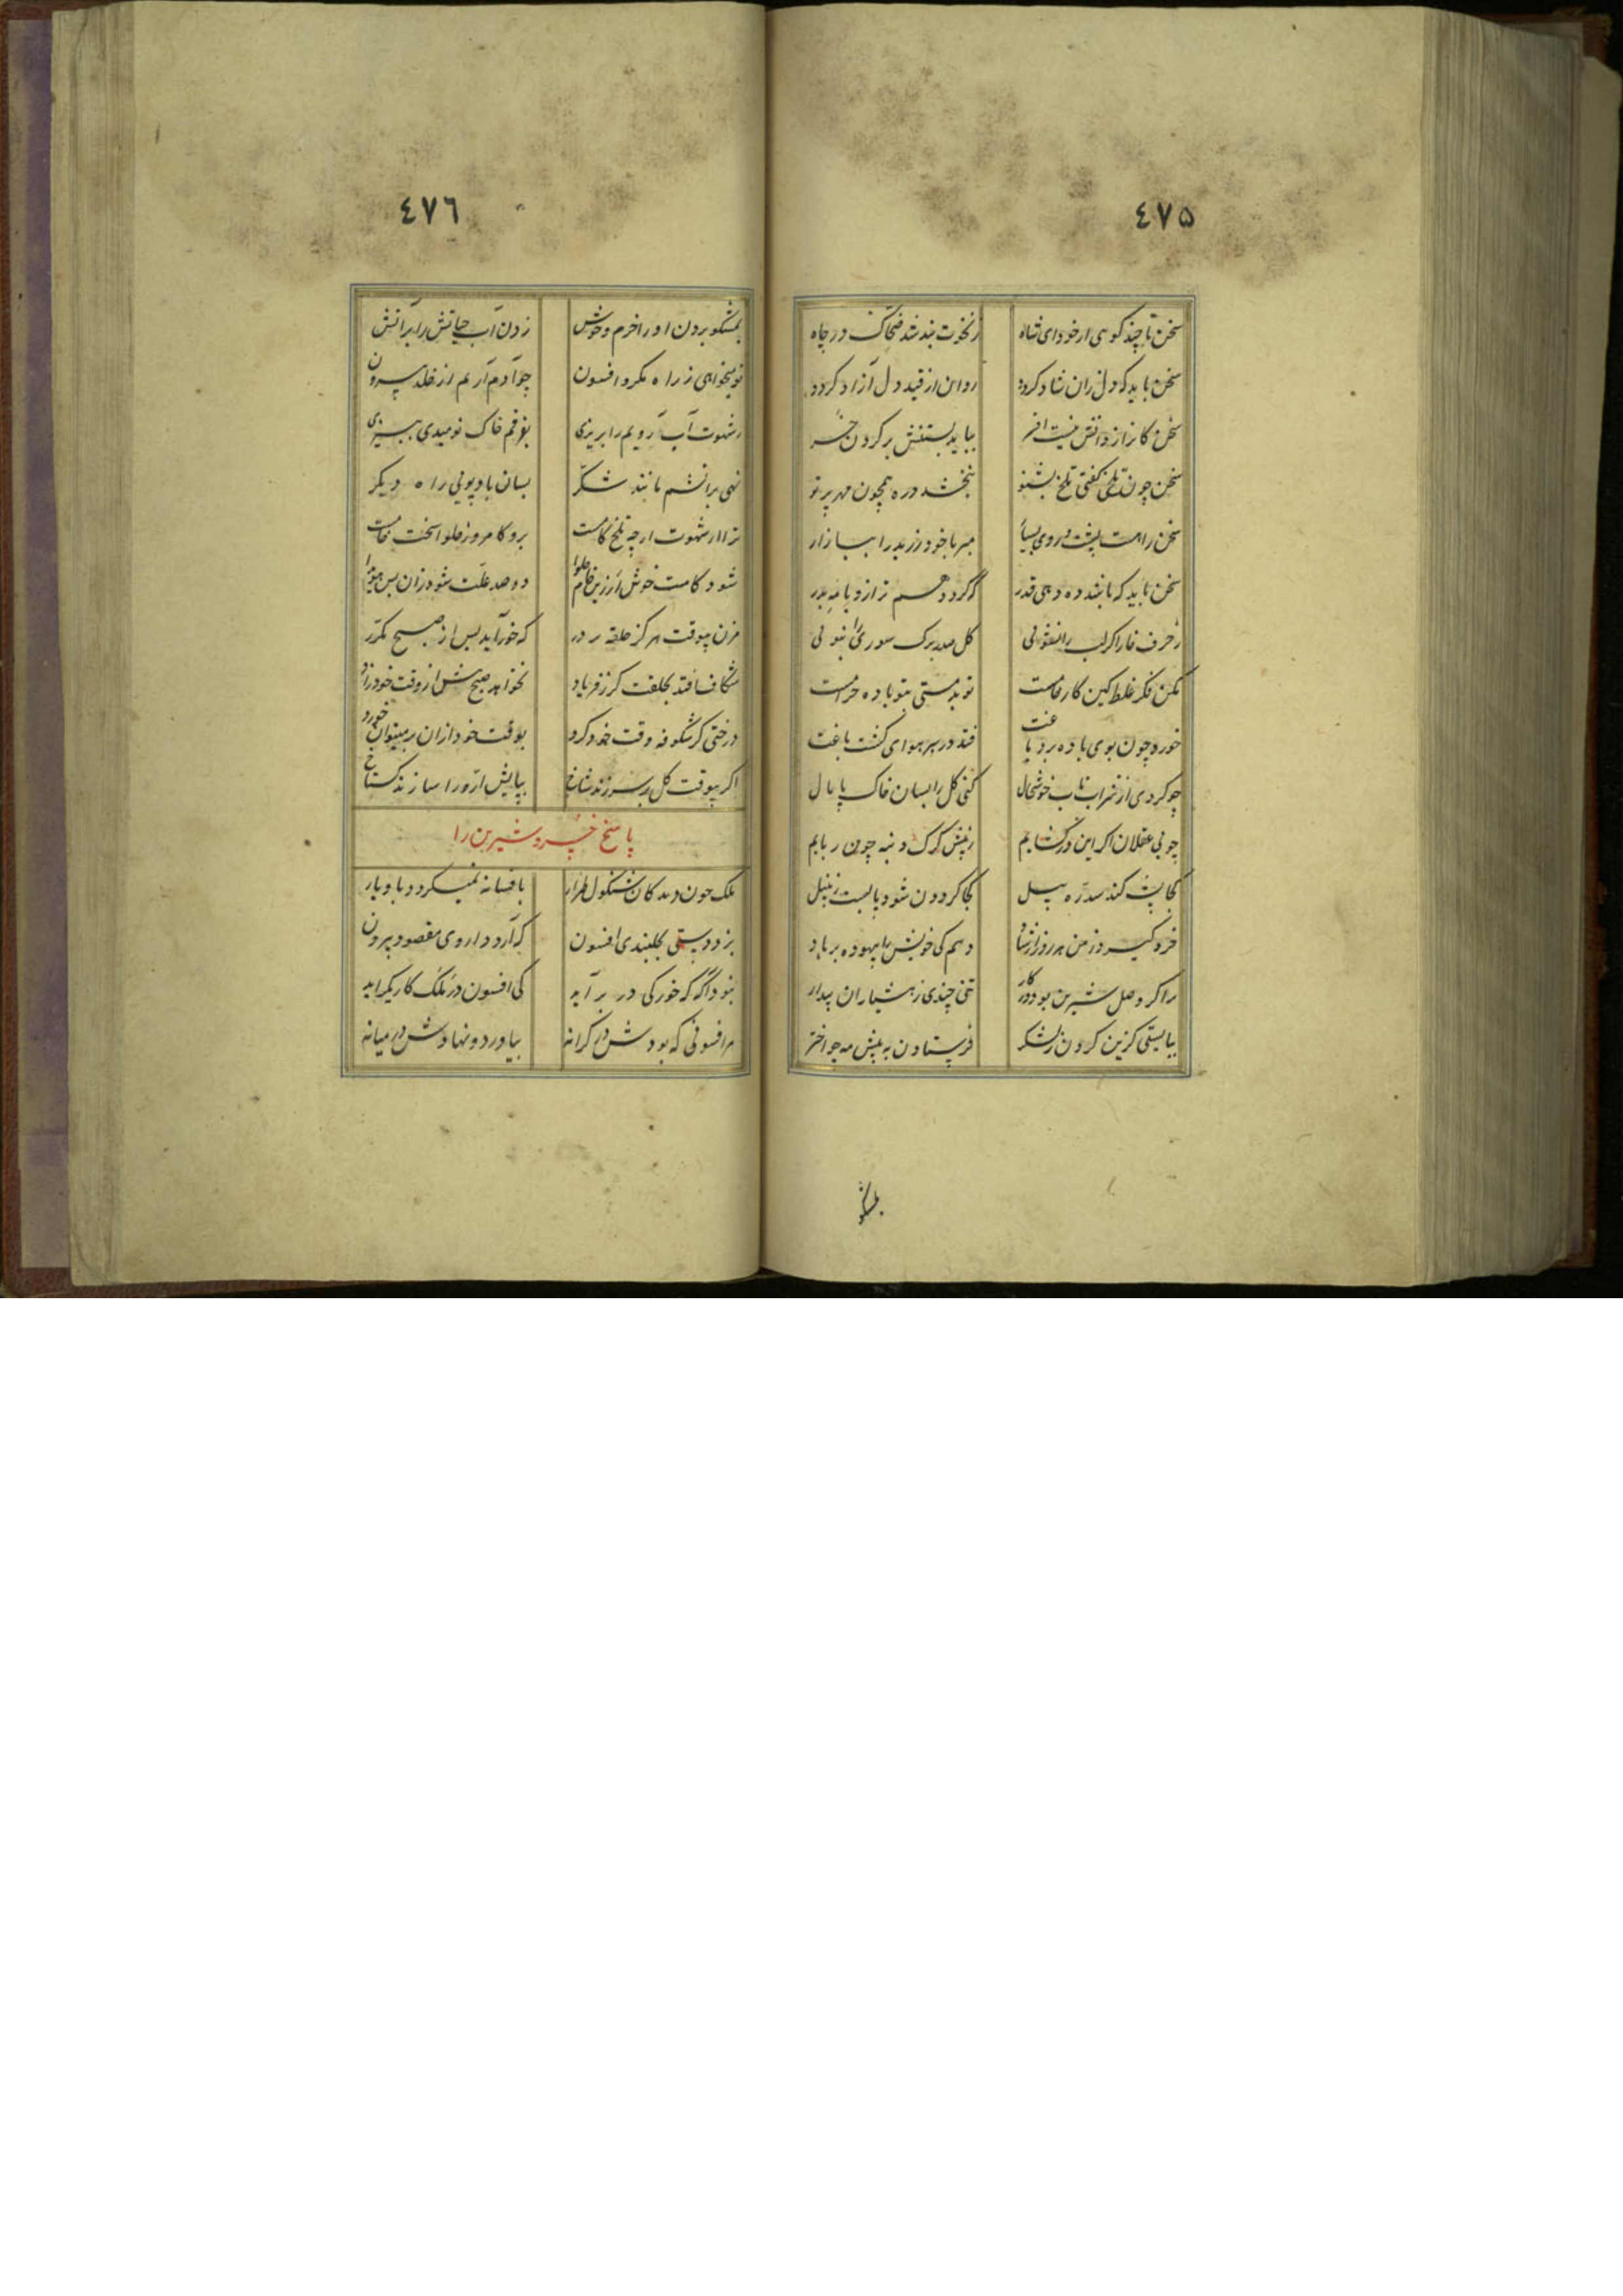 ٤٧٥
سخن تا چند کوسی ار خود ای شاه زنخوت بند شد ضحاک در چاه
سخن باید که دل زان شاد کردد روان از قید دل آزاد کردد
سخن کانرا ز دانش نیست افسر بباید بستنش بر کردن خر
سخن چون تلخ کفتی تلخ بشنو نبخشد دره همچون مهر پرتو
سخن را هست پشت و روی بسیار مبر با خود زر بد را ببازار
سخن باید که باشد ده دهی قدر که کردد هم ترازو با مه بدر
ز حرف خارا کر لب را نشوئی کل صد برک سوری را نبوئی
مکن فکر غلط کین کار خامست تو بد مستی بتو باده حرامست
خورد چون بوی باده بر دماغت فتد در سر هوای کشت باغت
چو کردی از شراب ناب خوشحال کنی کل را بسان خاک پامال
چو بی عقلان اکر این در کشایم ز پیش کرک دنبه چون ربایم
کجا پشه کند سد ره پیل کجا کردون شود پا بست زنبیل
خره کیرد ز من هر روز
دهم کی خویش را بیهوده بر باد
را کر وصل شیرین بود در کار تنی چندی ز هشیاران بیدار
ببایستی کزین کردن ز لشکر فرستادن به پیش مه چو اختر
بمشکو
٤٧٦
بمشکو بردن او را خرم و خوش زدن آب حیاتش را بر آتش
تو میخواهی ز راه مکر و افسون چو آدم آریم از خلد بیرون
ز شهوت آب رویم را بریزی بفرقم خاک نومیدی ببیزی
نهی بر آتشم مانند شکر بسان باد پوئی راه دیکر
ترا از شهوت ار چه تلخ کامست برو کامروز حلوا سخت خامست
شود کامت خوش ار زین خام حلوا دو صد علت شود زان پس هویدا
مزن بیوقت هرکز حلقه بر در که خور آید پس از صبح مکرر
شکاف افتد بحلقت کر ز فریاد نخواهد صبح پیش از وقت خود زاد
درختی کر شکوفه وقت خود کرد بوقت خود ازان بر میتوان خورد
اکر بیوقت کل بر سر زند شاخ بپایش ارّه را سازند کستاخ
پاسخ خسرو شیرین را
ملک چون دید کان شنکول طرار بافسانه نمیکردد باو یار
بزد دستی بکلبندی افسون که آرد داروی مقصود بیرون
نبود آکه که خور کی در بر آید کی افسون در ملک کاریکر آید
هر افسونی که بودش در کرانه بیاورد و نهادش در میانه